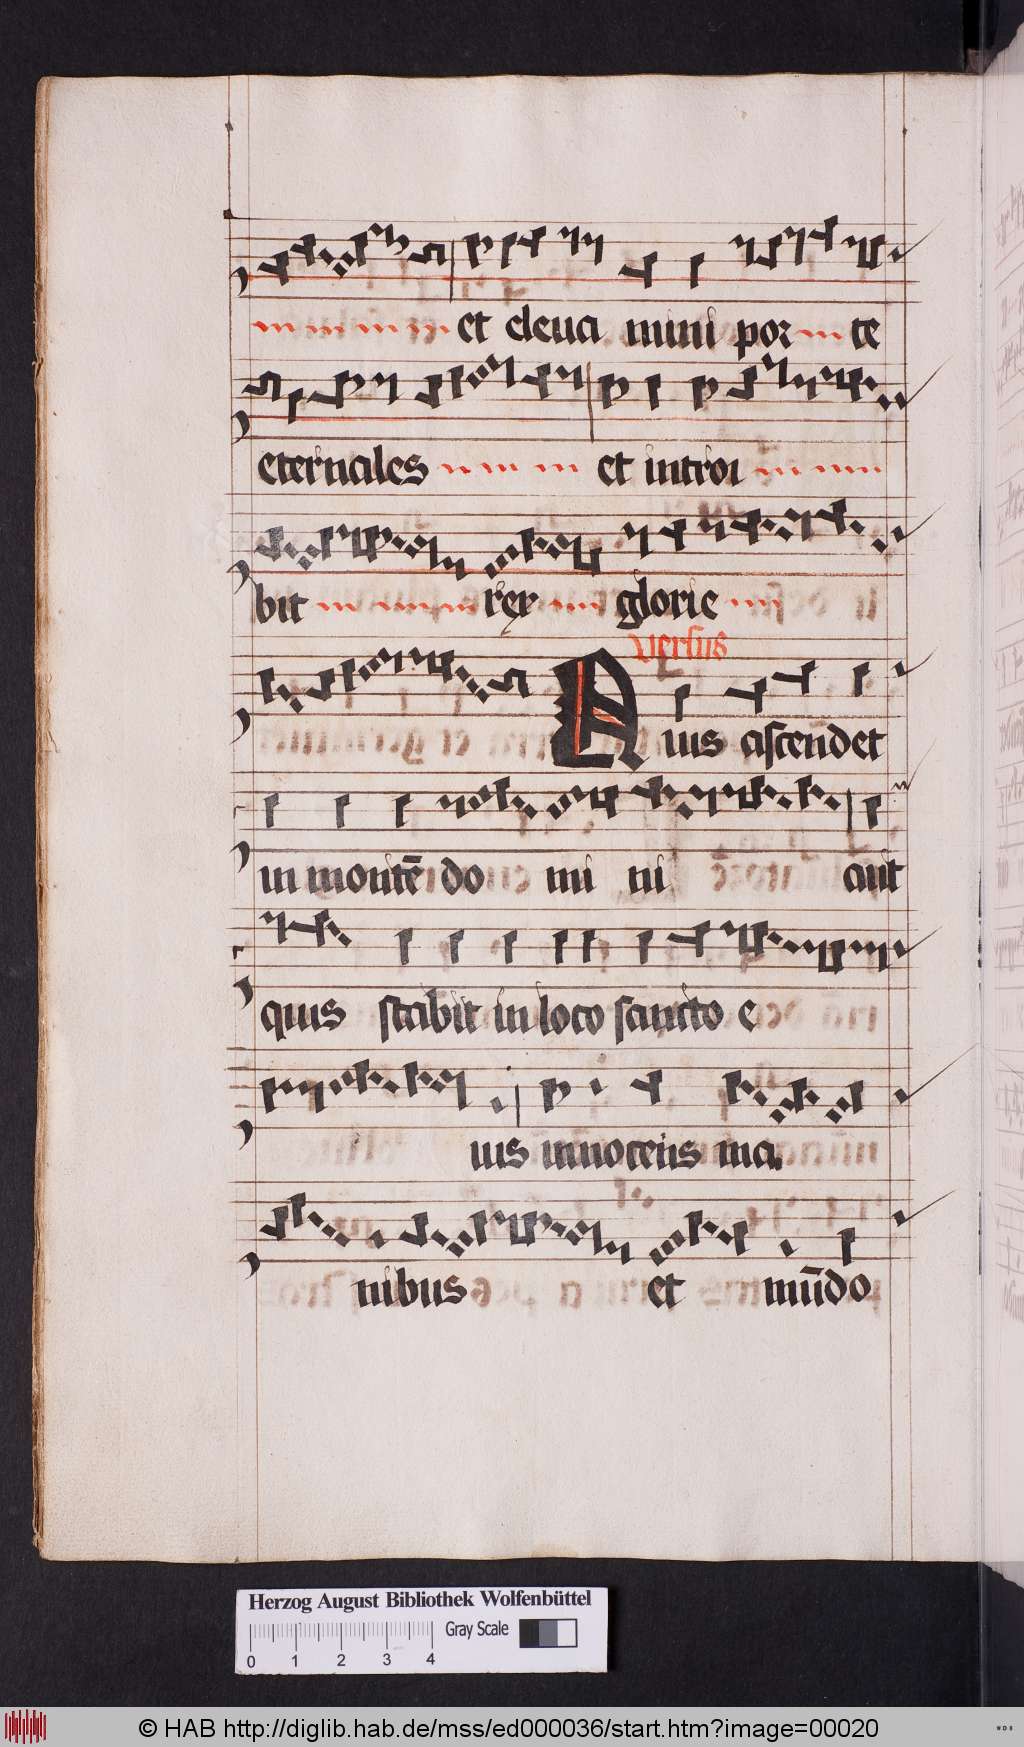 et eleua mini por te
eternales et introi
bit rex glorie
Versus
Quis ascendet
in montē do mi ni aut
quis stabit in loco sancto e
ius innocens ma
nibus et mūdo
Herzog August Bibliothek Wolfenbüttel
0 1 2 3 4 Gray Scale
© HAB http://diglib.hab.de/mss/ed000036/start.htm?image=00020